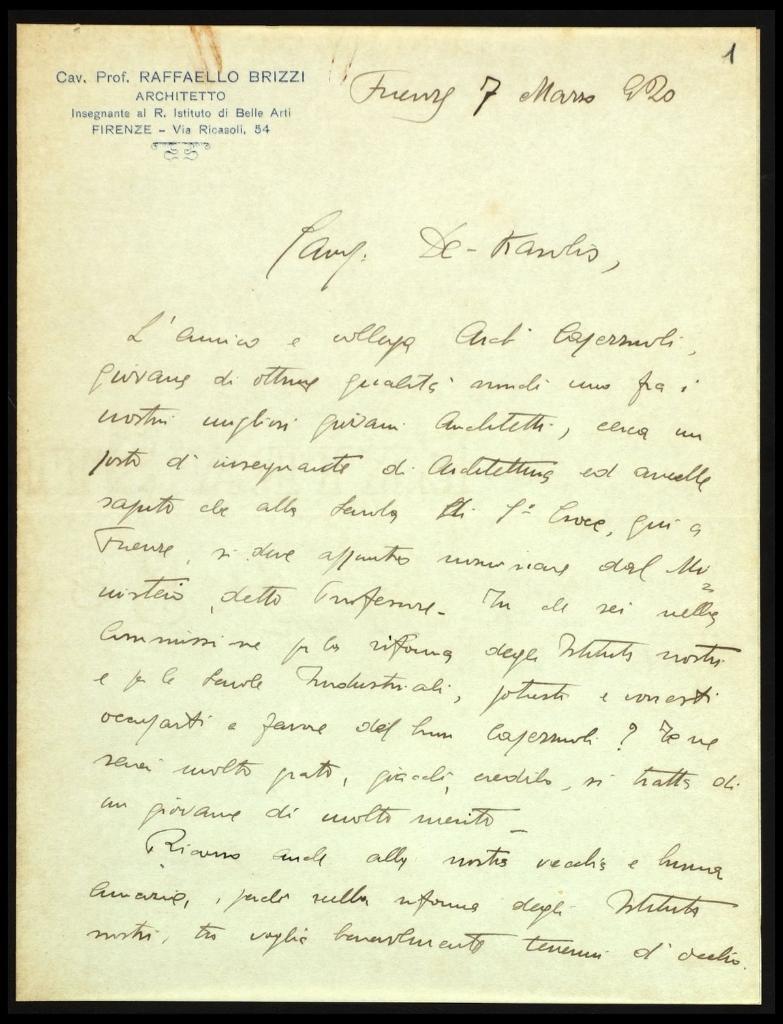 1
Cav. Prof. RAFFAELLO BRIZZI
ARCHITETTO
Insegnante al R. Istituto di Belle Arti
FIRENZE - Via Ricasoli, 54
Firenze 7 Marzo 920
De-Karolis,
L'amico e collega Arch
giovane di ottime qualità uno fra i
nostri migliori giovani Architetti, cerca un
posto d'insegnante di Architettura ed
saputo che alla Scuola di S.a Croce, qui a
Firenze, si deve appunto nominare dal Mi=
nistero, detto Professore. Tu che sei nella
Commissione per la riforma degli Istituti nostri
e per le Scuole Industriali, potresti e vorresti
occuparti a favore del buon ? Te ne
sarei molto grato, giacchè, credilo, si tratta di
un giovane di molto merito.
anche alla nostra vecchia e buona
amicizia, perchè nella riforma degli Istituti
nostri, tu voglia benevolmente tenermi d'occhio.